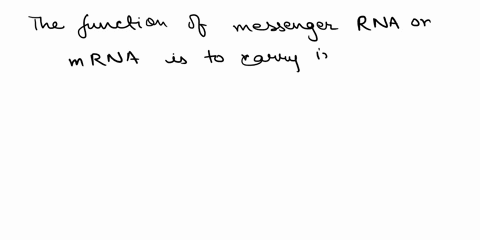 The function of messenger RNA or
mRNA is to carry